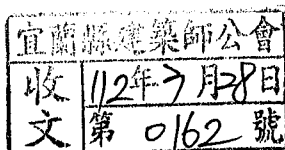 宜蘭縣建築師公會
收文
112年3月28日
第 0162 號